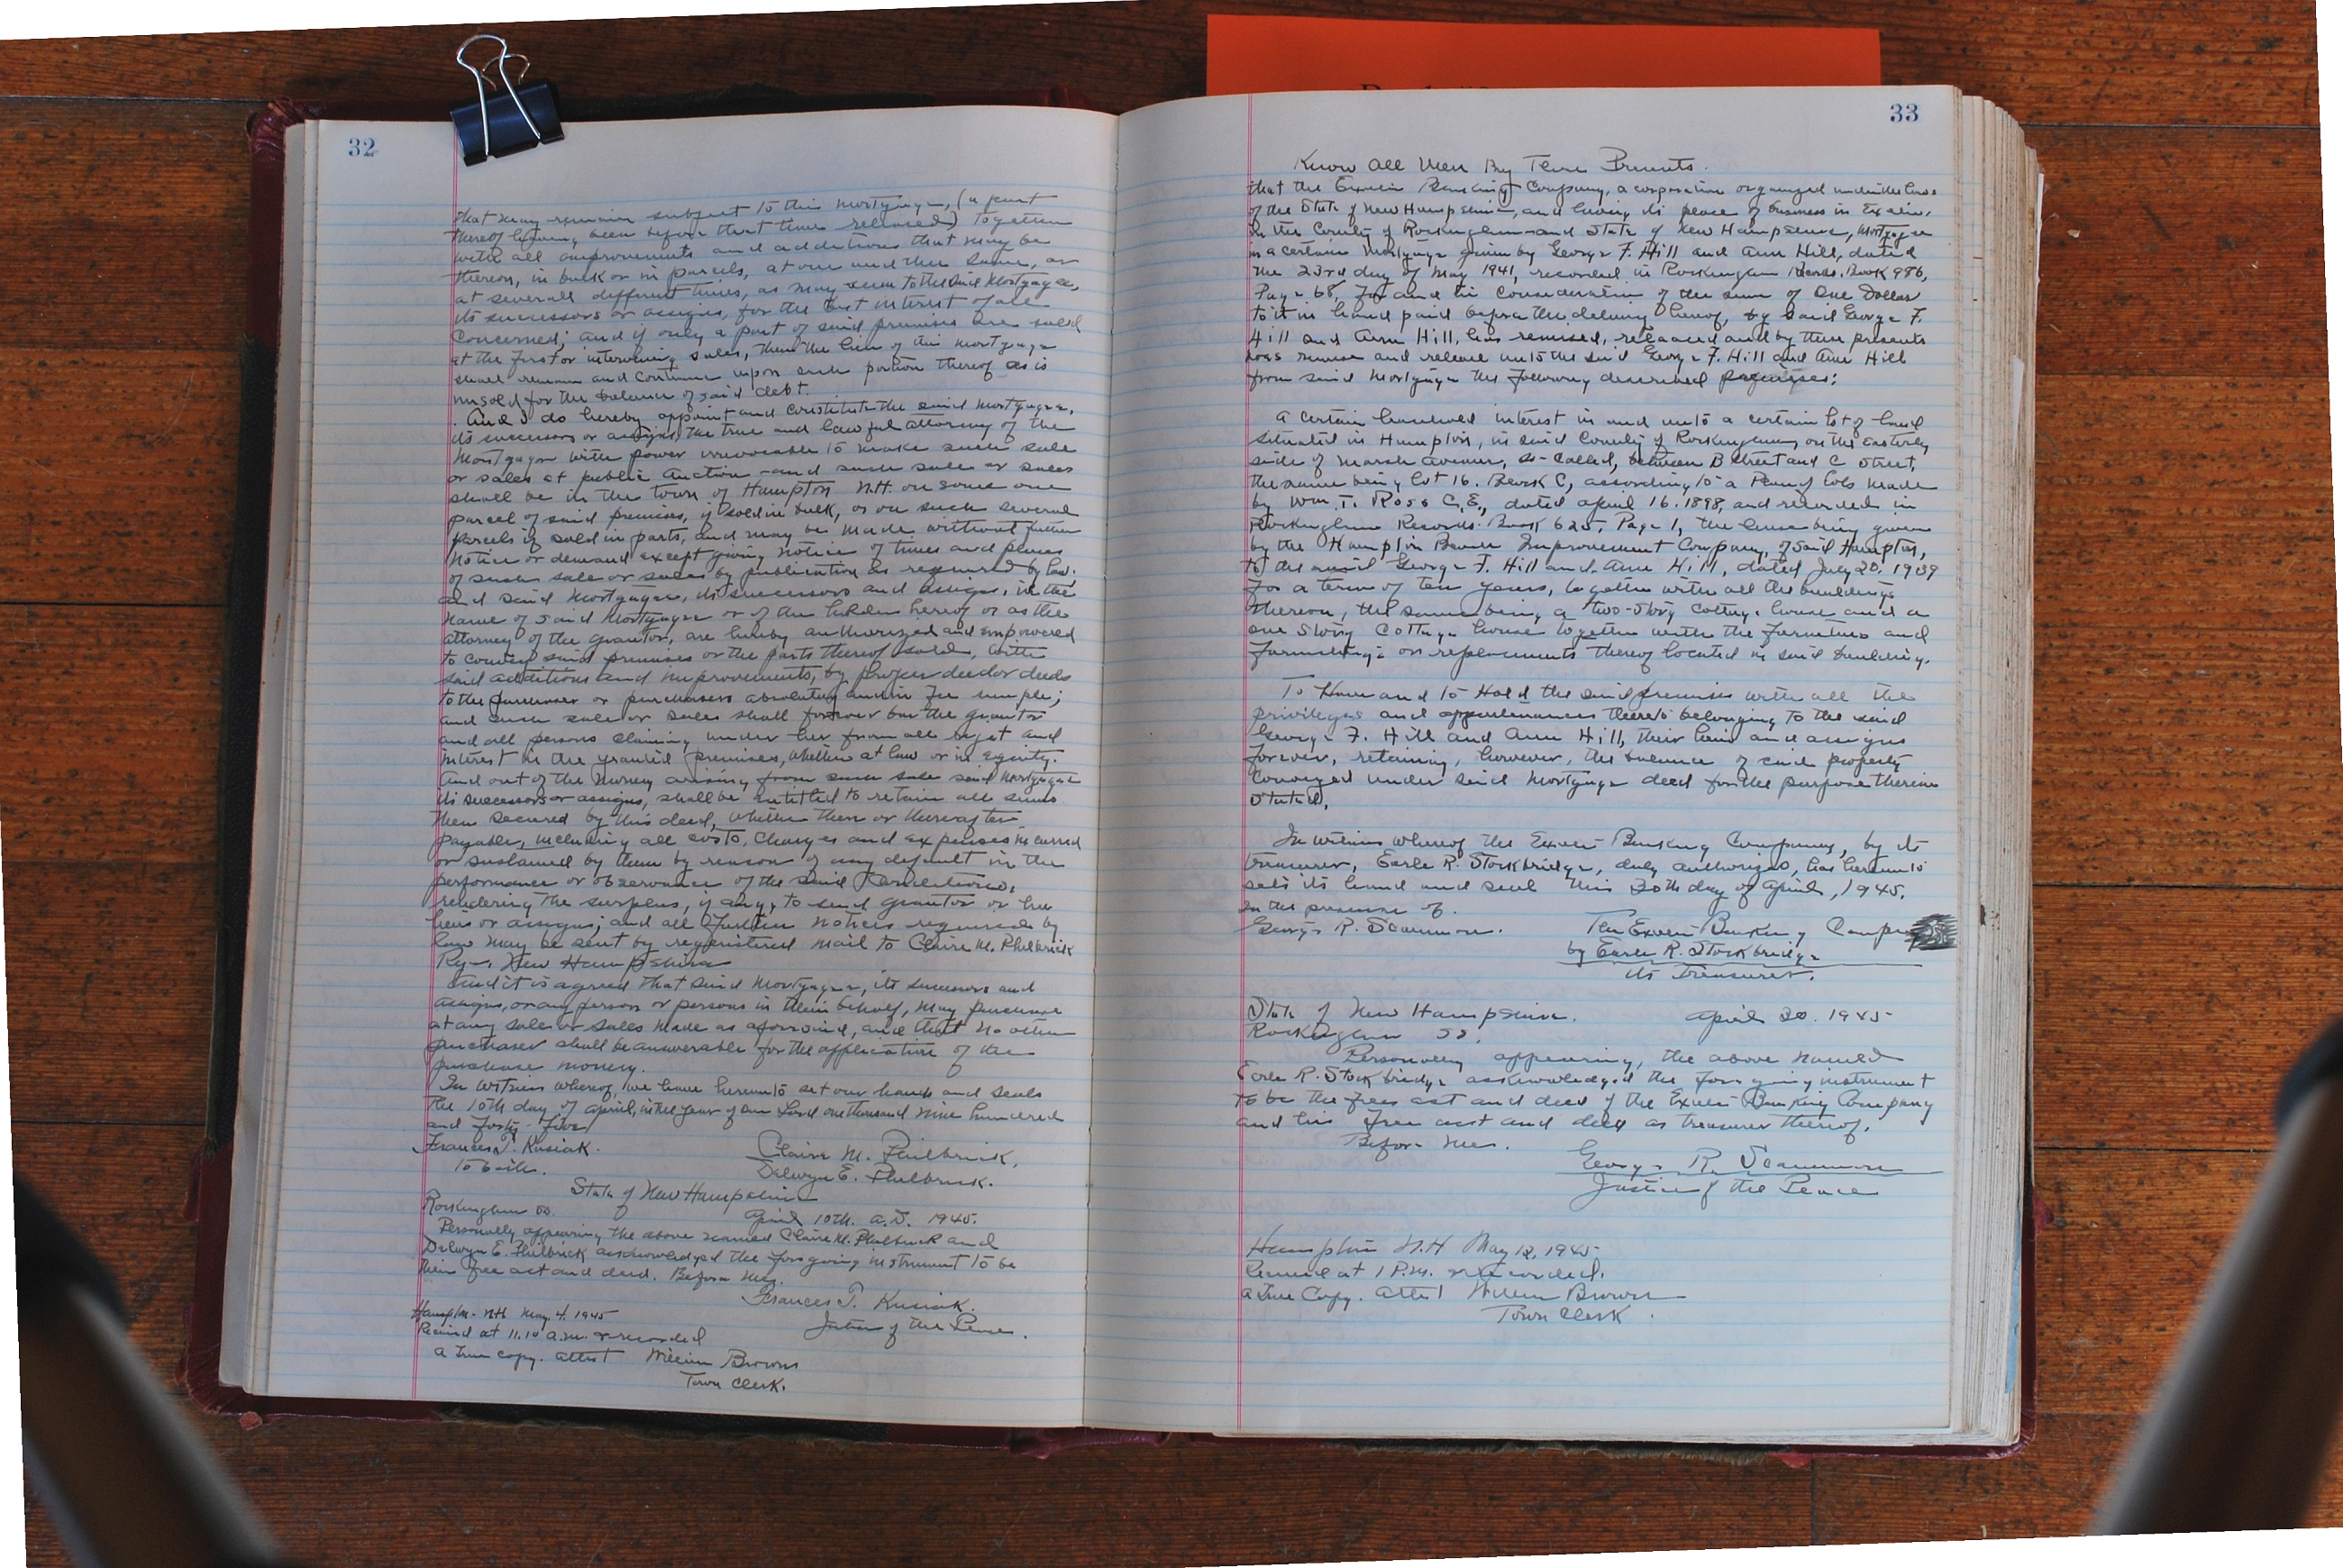 32
that may remain subject to this mortgage, (a part
thereof having been before that time released) together
with all improvements and additions that may be
thereon, in bulk or in parcels, at one and the same, or
at several different times, as may seem to the said Mortgagee,
its successors or assigns, for the best interest of all
Concerned; and if only a part of said premises are sold
at the first or intervening sales, then the lien of this mortgage
shall remain and continue upon such portion thereof as is
unsold for the balance of said debt.
And I do hereby appoint and constitute the said Mortgagee,
its successors or assigns, the true and lawful attorney of the
Mortgagor with power irrevocable to make such sale
or sales at public auction and such sale or sales
shall be in the town of Hampton N.H. on some one
parcel of said premises, if sold in bulk, or on such several
parcels if sold in parts, and may be made without further
notice or demand except giving notice of times and places
of such sale or sales by publication as required by law.
and said Mortgagee, its successors and assigns, in the
name of said Mortgagor or of the holder hereof or as the
attorney of the grantor, are hereby authorized and empowered
to convey said premises or the parts thereof sold, with
said additions and improvements, by proper deed or deeds
to the purchaser or purchasers absolutely and in fee simple;
and such sale or sales shall forever bar the grantor
and all persons claiming under her from all right and
interest in the granted premises, whether at law or in equity.
And out of the money arising from such sale said Mortgagee
its successors or assigns, shall be entitled to retain all sums
then secured by this deed, whether then or thereafter
payable, including all costs, charges and expenses incurred
or sustained by them by reason of any default in the
performance or observance of the said Conditions,
rendering the surplus, if any, to said grantor or her
heirs or assigns; and all further notices required by
law may be sent by registered mail to Claire M. Philbrick
Rye, New Hampshire
And it is agreed that said Mortgagee, its successors and
assigns, or any person or persons in their behalf, may purchase
at any sale or sales made as aforesaid, and that no other
purchaser shall be answerable for the application of the
purchase money.
In witness whereof, we have hereunto set our hands and seals
the 10th day of April, in the year of our Lord one thousand nine hundred
and forty-five
Frances T. Kusiak. Claire M. Philbrick.
to both. Delwyn E. Philbrick.
State of New Hampshire
Rockingham SS. April 10th. A.D. 1945.
Personally appearing the above named Claire M. Philbrick and
Delwyn E. Philbrick acknowledged the foregoing instrument to be
their free act and deed. Before me,
Frances T. Kusiak.
Justice of the Peace.
Hampton N.H. May 4, 1945
Received at 11.10 a.m. & recorded
a true copy. attest William Brown
Town Clerk.
33
Know All Men By These Presents.
that the Exeter Banking Company, a corporation organized under the laws
of the State of New Hampshire, and having its place of business in Exeter,
in the County of Rockingham and State of New Hampshire, Mortgagee
in a certain Mortgage given by George F. Hill and Ann Hill, dated
the 23rd day of May 1941, recorded in Rockingham Records. Book 986,
Page 68, for and in consideration of the sum of One Dollar
to it in hand paid before the delivery hereof, by said George F.
Hill and Ann Hill, has remised, released and by these presents
does remise and release unto the said George F. Hill and Ann Hill
from said Mortgage the following described premises:
A certain leasehold interest in and unto a certain lot of land
situated in Hampton, in said County of Rockingham, on the easterly
side of Marsh Avenue, so-called, between B Street and C Street,
the same being lot 16. Block C, according to a Plan of lots made
by Wm. T. Ross C.E., dated April 16. 1898, and recorded in
Rockingham Records. Book 625, Page 1, the lease being given
by the Hampton Beach Improvement Company, of said Hampton,
to the said George F. Hill and Ann Hill, dated July 20, 1939
for a term of ten years, together with all the buildings
thereon, the same being a two-story cottage house and a
one story cottage house together with the furniture and
furnishings or replacements thereof located in said building.
To Have and to Hold the said premises with all the
privileges and appurtenances thereto belonging to the said
George F. Hill and Ann Hill, their heirs and assigns
forever, retaining, however, the balance of said property
Conveyed under said Mortgage deed for the purpose therein
stated.
In witness whereof the Exeter Banking Company, by its
treasurer, Earle R. Stockbridge, duly authorized, has hereunto
sets its hand and seal this 30th day of April, 1945.
In the presence of
George R. Scammon. The Exeter Banking Compa
by Earle R. Stockbridge
its Treasurer.
State of New Hampshire. April 30. 1945
Rockingham SS.
Personally appearing, the above named
Earle R. Stockbridge acknowledged the foregoing instrument
to be the free act and deed of the Exeter Banking Company
and his free act and deed as treasurer thereof.
Before me.
George R. Scammon
Justice of the Peace
Hampton N.H May 12, 1945
Received at 1 P.M. & recorded.
a True Copy. Attest William Brown
Town Clerk.